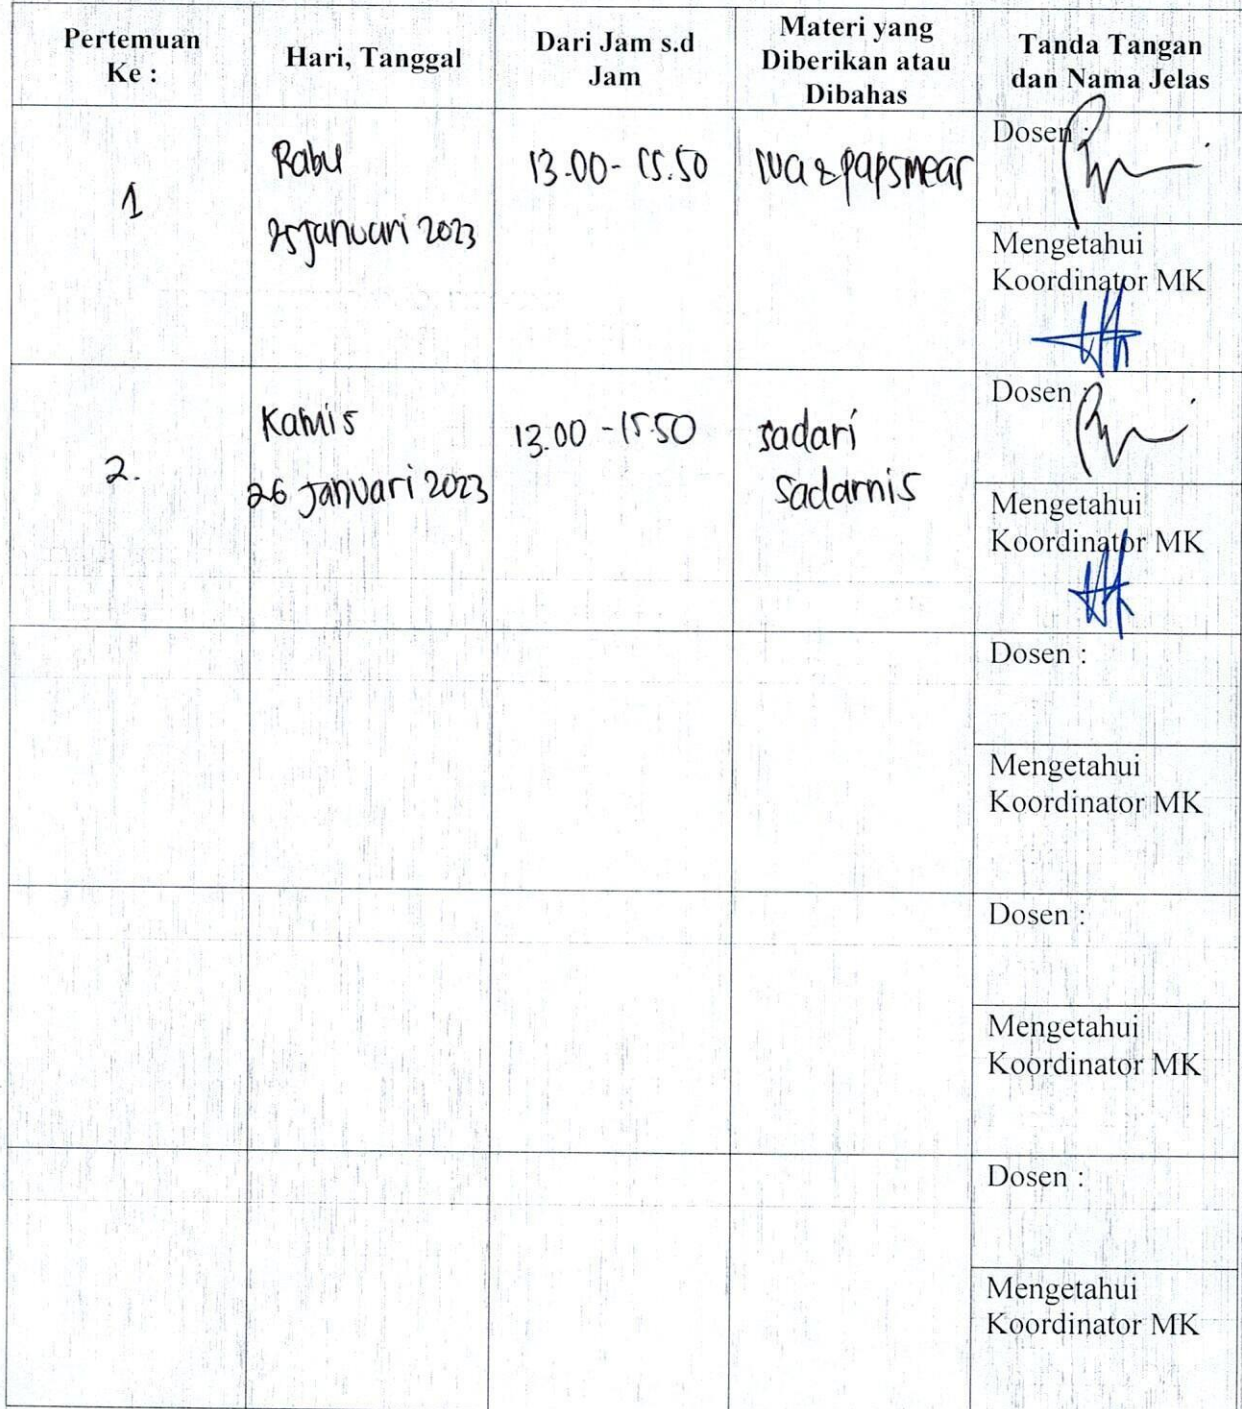 Pertemuan
Ke :
Hari, Tanggal
Dari Jam s.d
Jam
Materi yang
Diberikan atau
Dibahas
Tanda Tangan
dan Nama Jelas
1
Rabu
25 Januari 2023
13.00 - 15.50
IVA & papsmear
Dosen :
Mengetahui
Koordinator MK
2.
Kamis
26 Januari 2023
13.00 - 15.50
sadari
sadarnis
Dosen :
Mengetahui
Koordinator MK
Dosen :
Mengetahui
Koordinator MK
Dosen :
Mengetahui
Koordinator MK
Dosen :
Mengetahui
Koordinator MK